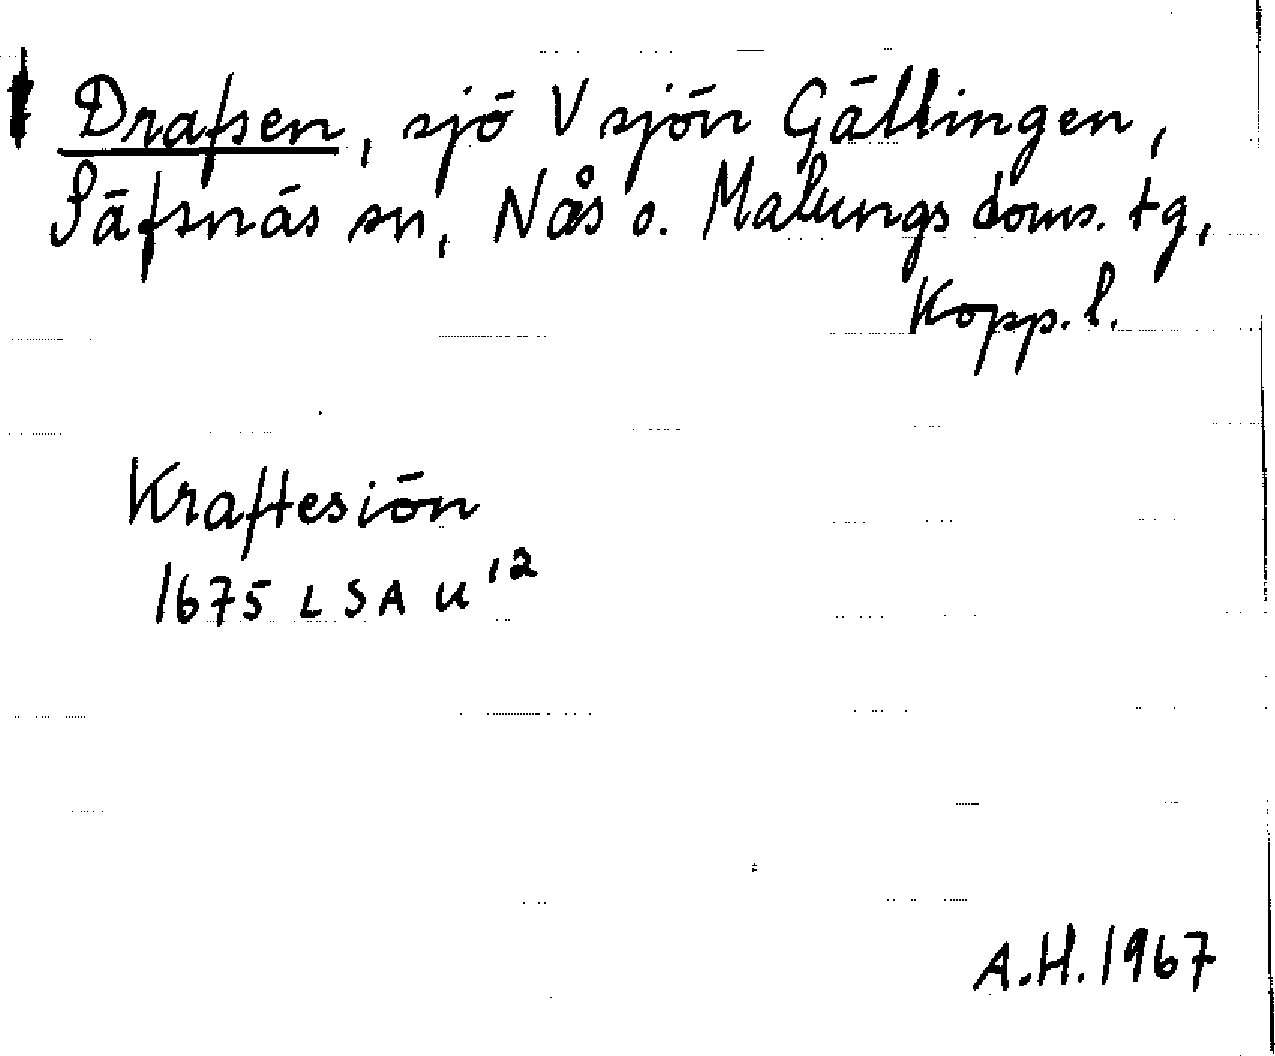 Drafsen, sjö V sjön Gällingen,
Säfsnäs sn, Nås o. Malungs doms. tg,
Kopp. l.
Kraftesiön
1675 LSA U 12
A.H. 1967